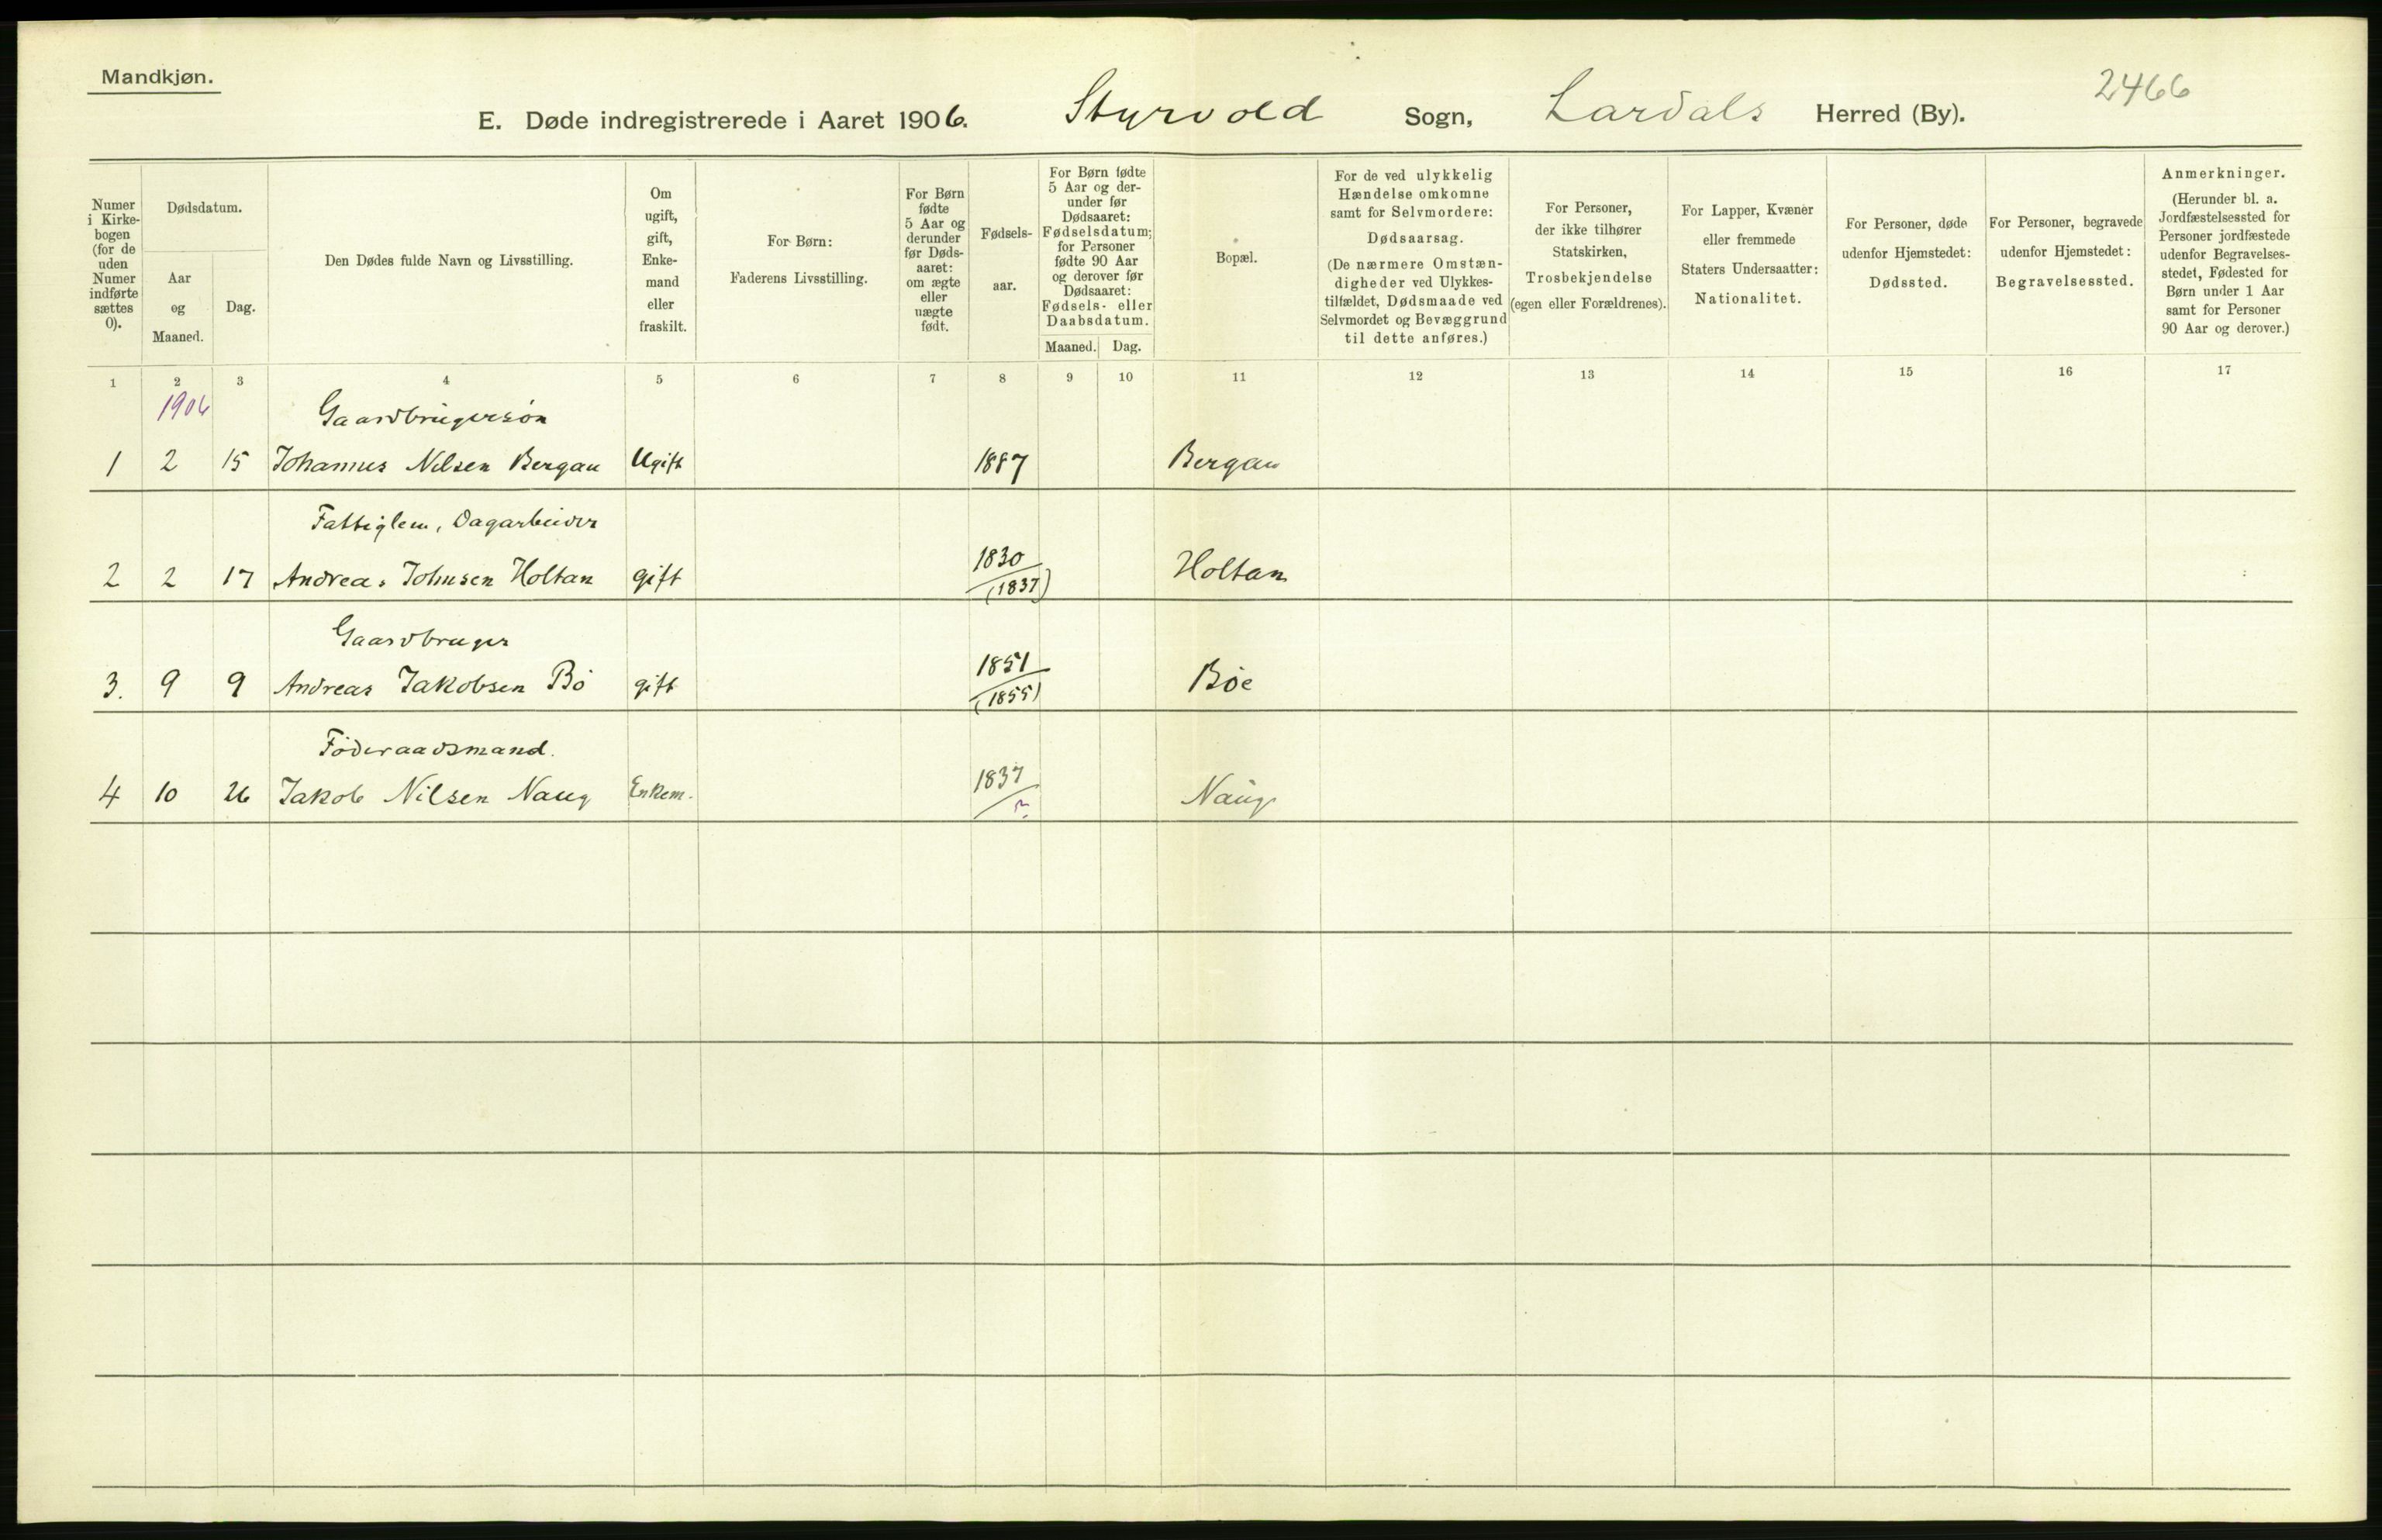 Mandkjøn.
2466
E. Døde indregistrerede i Aaret 1906. Styrvold Sogn, Lardals Herred (By).
Numer i Kirke-bogen (for de uden Numer indførte sættes 0).
Dødsdatum.
Aar og Maaned.
Dag.
Den Dødes fulde Navn og Livsstilling.
Om ugift, gift, Enke-mand eller fraskilt.
For Børn: Faderens Livsstilling.
For Børn fødte 5 Aar og derunder før Døds-aaret: om ægte eller uægte født.
Fødsels-aar.
For Børn fødte 5 Aar og der-under før Dødsaaret: Fødselsdatum; for Personer fødte 90 Aar og derover før Dødsaaret: Fødsels- eller Daabsdatum.
Maaned. Dag.
Bopæl.
For de ved ulykkelig Hændelse omkomne samt for Selvmordere: Dødsaarsag. (De nærmere Omstæn-digheder ved Ulykkes-tilfældet, Dødsmaade ved Selvmordet og Bevæggrund til dette anføres.)
For Personer, der ikke tilhører Statskirken, Trosbekjendelse (egen eller Forældrenes).
For Lapper, Kvæner eller fremmede Staters Undersaatter: Nationalitet.
For Personer, døde udenfor Hjemstedet: Dødssted.
For Personer, begravede udenfor Hjemstedet: Begravelsessted.
Anmerkninger. (Herunder bl. a. Jordfæstelsessted for Personer jordfæstede udenfor Begravelses-stedet, Fødested for Børn under 1 Aar samt for Personer 90 Aar og derover.)
1 2 3 4 5 6 7 8 9 10 11 12 13 14 15 16 17
1906 Gaardbrugersøn
1 2 15 Johannes Nilsen Bergan Ugift 1887 Bergan
Fattiglem, Dagarbeider
2 2 17 Andreas Johnsen Holtan gift 1830 (1837) Holtan
Gaardbruger
3. 9 9 Andreas Jakobsen Bö gift 1851 (1855) Böe
Föderaadsmand.
4 10 26 Jakob Nilsen Naug Enkem. 1837 ? Naug